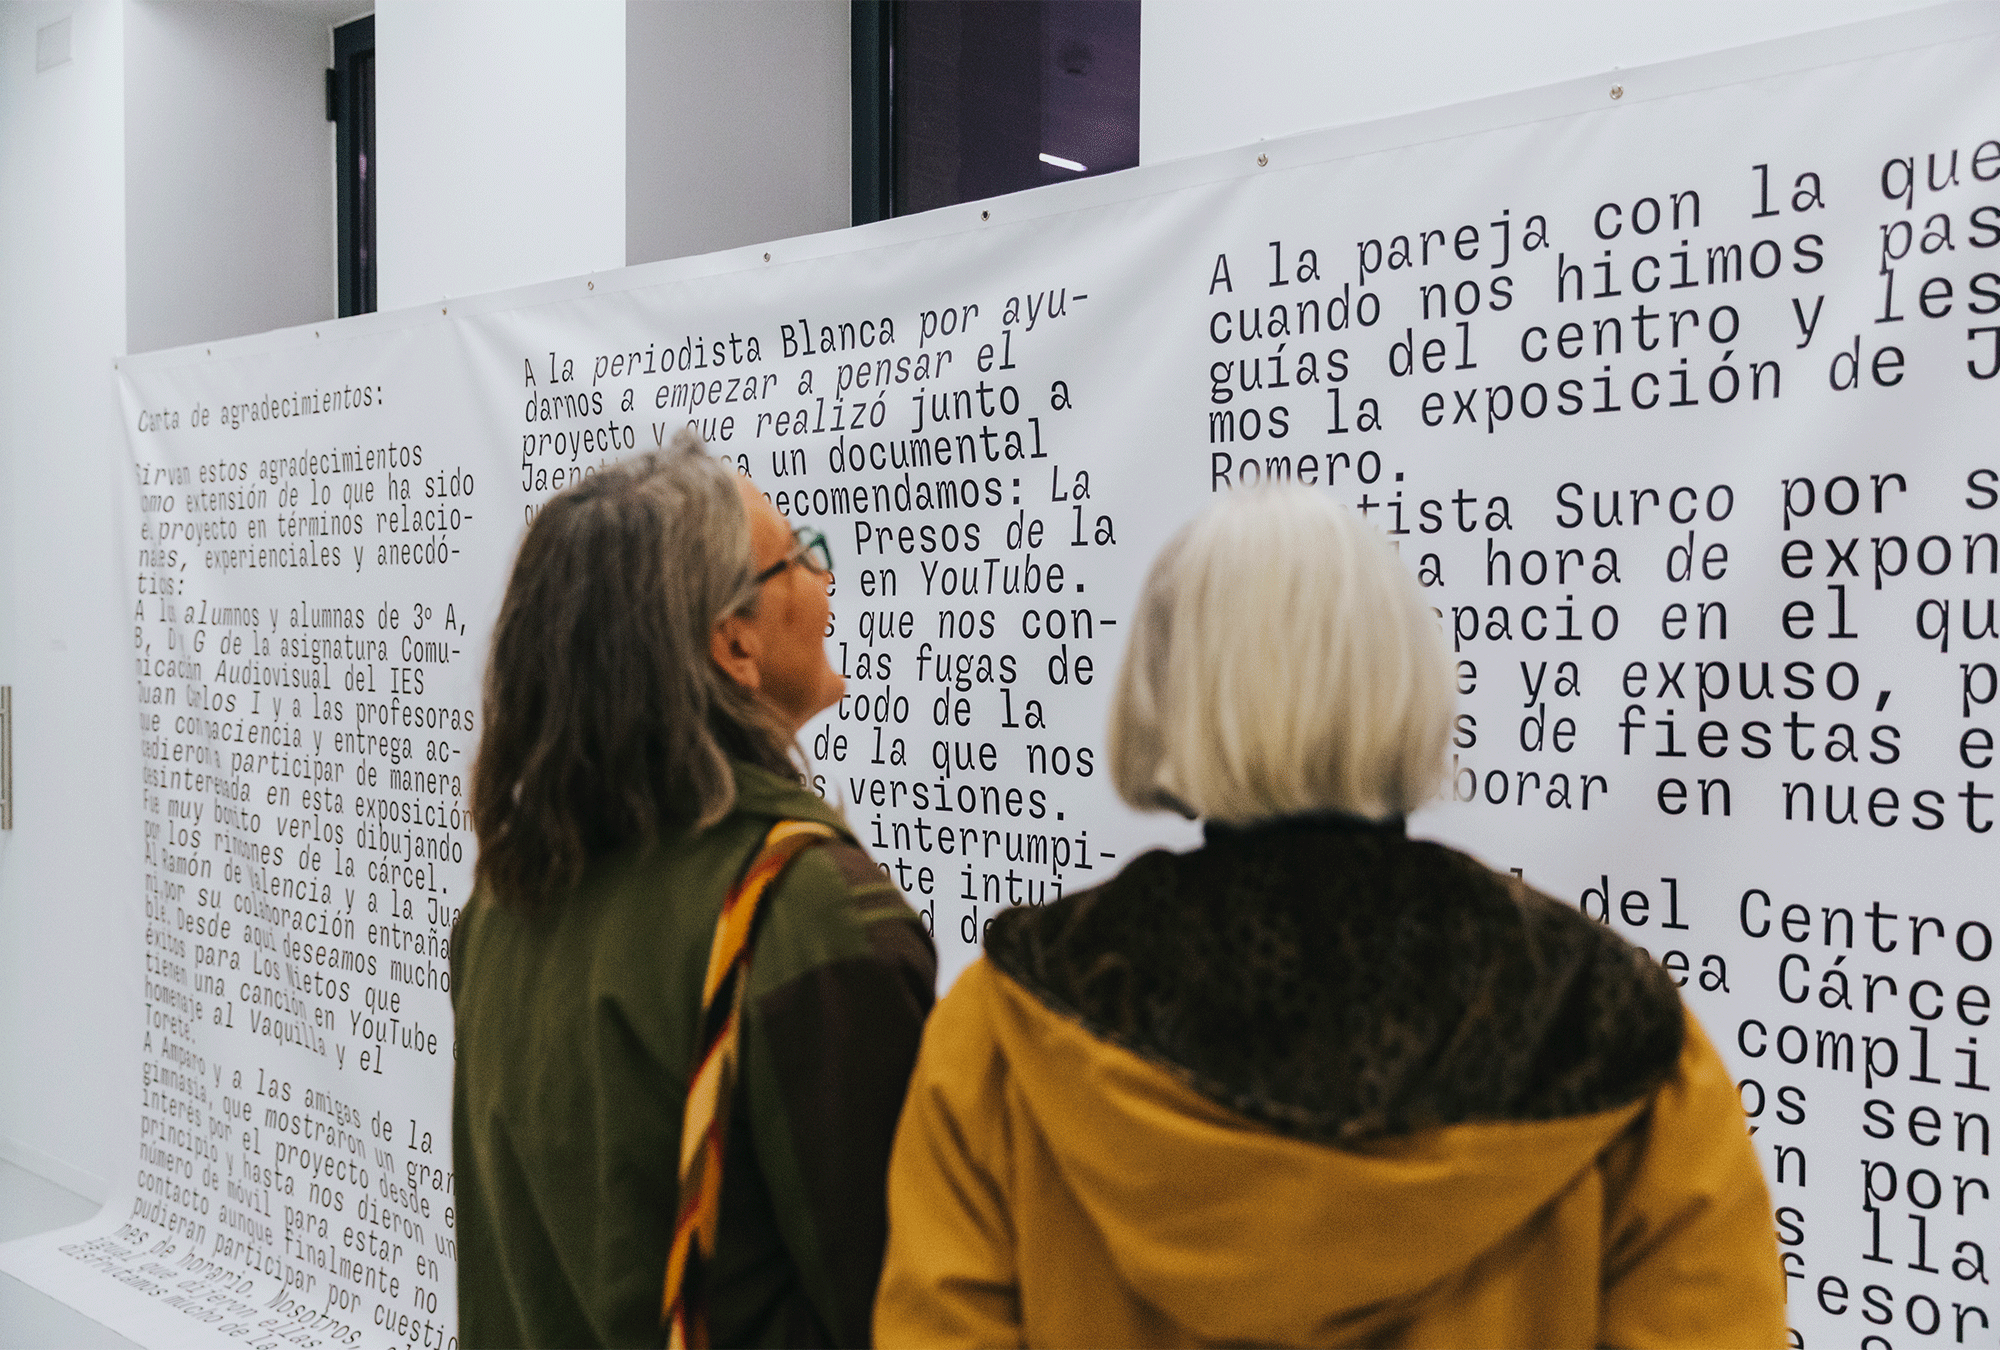 Carta de agradecimientos:
Sirvan estos agradecimientos
como extensión de lo que ha sido
el proyecto en términos relacio-
nales, experienciales y anecdó-
ticos:
A los alumnos y alumnas de 3º A,
B, D y G de la asignatura Comu-
nicación Audiovisual del IES
Juan Carlos I y a las profesoras
que con paciencia y entrega ac-
cedieron a participar de manera
desinteresada en esta exposición
Fue muy bonito verlos dibujando
por los rincones de la cárcel.
Al Ramón de Valencia y a la Jua
ni por su colaboración entraña
ble. Desde aquí deseamos mucho
éxitos para Los Nietos que
tienen una canción en YouTube
homenaje al Vaquilla y el
Torete.
A Amparo y a las amigas de la
gimnasia, que mostraron un gran
interés por el proyecto desde e
principio y hasta nos dieron un
número de móvil para estar en
contacto aunque finalmente no
pudieran participar por cuestio
nes de horario. Nosotros,
igual que dijeron ellas
disfrutamos mucho de la
A la periodista Blanca por ayu-
darnos a empezar a pensar el
proyecto y que realizó junto a
a un documental
recomendamos: La
Presos de la
en YouTube.
que nos con-
las fugas de
todo de la
de la que nos
versiones.
interrumpi-
nte intui
d de
A la pareja con la que
cuando nos hicimos pas
guías del centro y les
mos la exposición de J
Romero.
tista Surco por s
la hora de expon
spacio en el qu
e ya expuso, p
s de fiestas e
borar en nuest
del Centro
ea Cárce
compli
os sen
n por
s lla
fesor